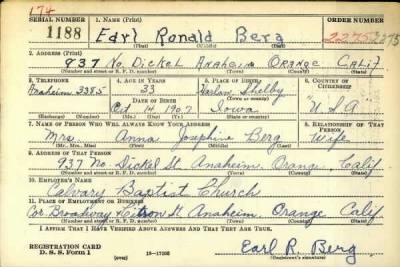 174
SERIAL NUMBER 1. NAME (Print) ORDER NUMBER
1188 Earl Ronald Berg 2275 2275
(First) (Middle) (Last)
2. ADDRESS (Print)
937 No. Dickel Anaheim Orange Calif
(Number and street or R. F. D. number) (Town) (County) (State)
3. TELEPHONE 4. AGE IN YEARS 5. PLACE OF BIRTH 6. COUNTRY OF CITIZENSHIP
Anaheim 3385 33 Harlan, Shelby
DATE OF BIRTH (Town or county)
Oct 14 1907 Iowa U.S.A
(Exchange) (Number) (Mo.) (Day) (Yr.) (State or country)
7. NAME OF PERSON WHO WILL ALWAYS KNOW YOUR ADDRESS 8. RELATIONSHIP OF THAT PERSON
Mrs. Anna Josephine Berg Wife
(Mr., Mrs., Miss) (First) (Middle) (Last)
9. ADDRESS OF THAT PERSON
937 No. Dickel St. Anaheim, Orange, Calif.
(Number and street or R. F. D. number) (Town) (County) (State)
10. EMPLOYER'S NAME
Calvary Baptist Church
11. PLACE OF EMPLOYMENT OR BUSINESS
Cor. Broadway & Citron St. Anaheim, Orange Calif
(Number and street or R. F. D. number) (Town) (County) (State)
I AFFIRM THAT I HAVE VERIFIED ABOVE ANSWERS AND THAT THEY ARE TRUE.
REGISTRATION CARD
D. S. S. Form 1 (over) 16-17105 Earl R. Berg
(Registrant's signature)